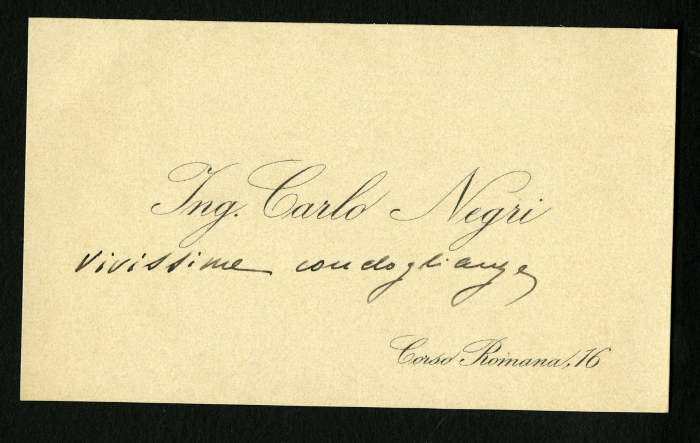 Ing. Carlo Negri
vivissime condoglianze
Corso Romana, 16